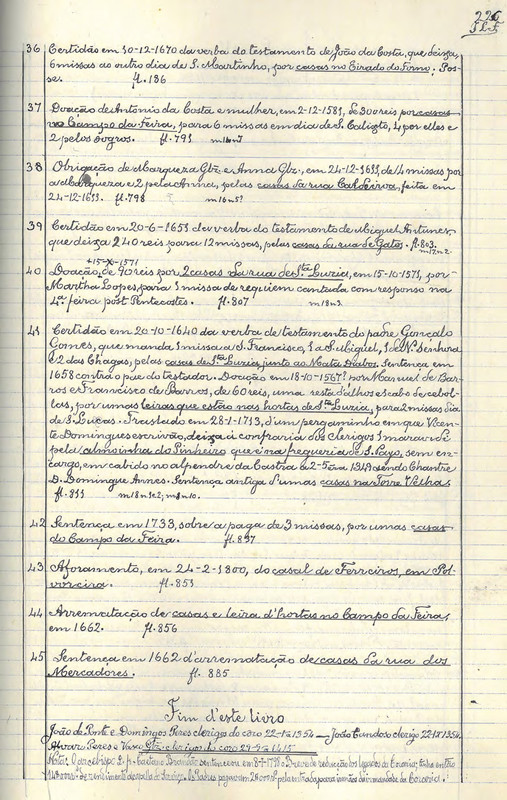 226
36 Certidão em 30-12-1670 da verba do testamento de João da Costa, que deixa,
6 missas ao outro dia de S. Martinho, por casas no Eirado do Forno; Pos-
se. fl. 136
37 Doação de Antonio da Costa e mulher, em 2-12-1581, de 300 reis por casas
no Campo da Feira, para 6 missas em dia de S. Calixto, 4 por elles e
2 pelos sogros. fl. 791
38 Obrigação de Marqueza Glz. e Anna Glz., em 24-12-1699, de 14 missas por
a Marqueza e 2 pela Anna, pelas casas da rua Caldeirôa, feita em
24-12-1699. fl. 798
39 Certidão em 20-6-1651 da verba do testamento de Miguel Antunes,
que deixa 240 reis para 12 missas, pelas casas da rua de Gatos. fl. 803
40 Doação, de 90 reis por 2 casas da rua de Sta Luzia, em 15-10-1571, por
Martha Lopes, para 1 missa de requiem cantada com responso na
4.ª feira post Pentecostes. fl. 807
41 Certidão em 20-10-1640 da verba de testamento do padre Gonçalo
Gomes, que manda 1 missa a S. Francisco, 1 a S. Miguel, 1 de N. Senhora
e 2 das Chagas, pelas casas de Sta Luzia, junto ao Mata Diabos. Sentença em
1658 contra o pae do testador. Doação em 18-10-1567? por Manuel de Bar-
ros e Francisco de Barros, de 60 reis, uma resta d'alhos e cabo de cebol-
las, por umas leiras que estão nas hortas de Sta Luzia, para 2 missas dia
de S. Lucas. Traslado em 28-1-1713, d'um pergaminho em que Vicen-
te Domingues escrivão, deixa á confraria dos Clerigos 1 maravedi
pela almoinha do Pinheiro que é na freguezia de S. Payo, sem en-
cargo, em cabido no alpendre da Crasta a 2-5 era 1349 sendo Chantre
D. Domingue Annes. Sentença antiga d'umas casas na Torre Velha.
fl. 811
42 Sentença em 1733, sobre a paga de 3 missas, por umas casas
do Campo da Feira. fl. 837
43 Aforamento, em 24-2-1800, do casal de Ferreiros, em Pol-
voreira. fl. 851
44 Arrematação de casas e leira d'hortas no Campo da Feira,
em 1662. fl. 856
45 Sentença em 1662 d'arrematação de casas da rua dos
Mercadores. fl. 885
Fim d'este livro
João de Ponte e Domingos Peres clerigo do coro 22-1-1354 — João Eundoso clerigo 22-1-1354.
Alvaro Peres e Vasco Glz. clerigos do coro 29-9-1415